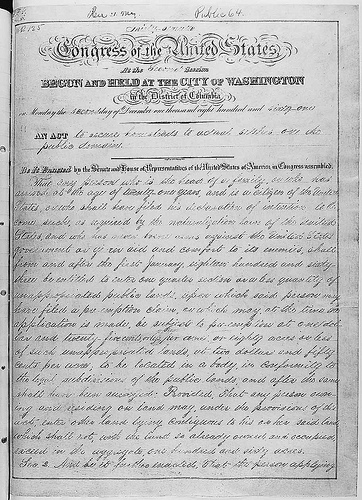 Public 64.
Congress of the United States,
At the Second Session
BEGUN AND HELD AT THE CITY OF WASHINGTON
in the District of Columbia
on Monday the second day of December one thousand eight hundred and sixty-one
AN ACT to secure homesteads to actual settlers on the
public domain.
Be it Enacted by the Senate and House of Representatives of the United States of America in Congress assembled,
That any person who is the head of a family, or who has
arrived at the age of twenty one years, and is a citizen of the United
States, or who shall have filed his declaration of intention to be
come such, as required by the naturalization laws of the United
States, and who has never borne arms against the United States
Government or given aid and comfort to its enemies, shall,
from and after the first January, eighteen hundred and sixty
three be entitled to enter one quarter section or a less quantity of
unappropriated public lands, upon which said person may
have filed a preemption claim, or which may, at the time the
application is made, be subject to preemption at one dol
lar and twenty five cents, or less, per acre; or eighty acres or less
of such unappropriated lands, at two dollars and fifty
cents per acre, to be located in a body, in conformity to
the legal subdivisions of the public lands, and after the same
shall have been surveyed: Provided, That any person own
ing and residing on land may, under the provisions of this
act, enter other land lying contiguous to his or her said land,
which shall not, with the land so already owned and occupied,
exceed in the aggregate one hundred and sixty acres.
Sec. 2. And be it further enacted, That the person applying